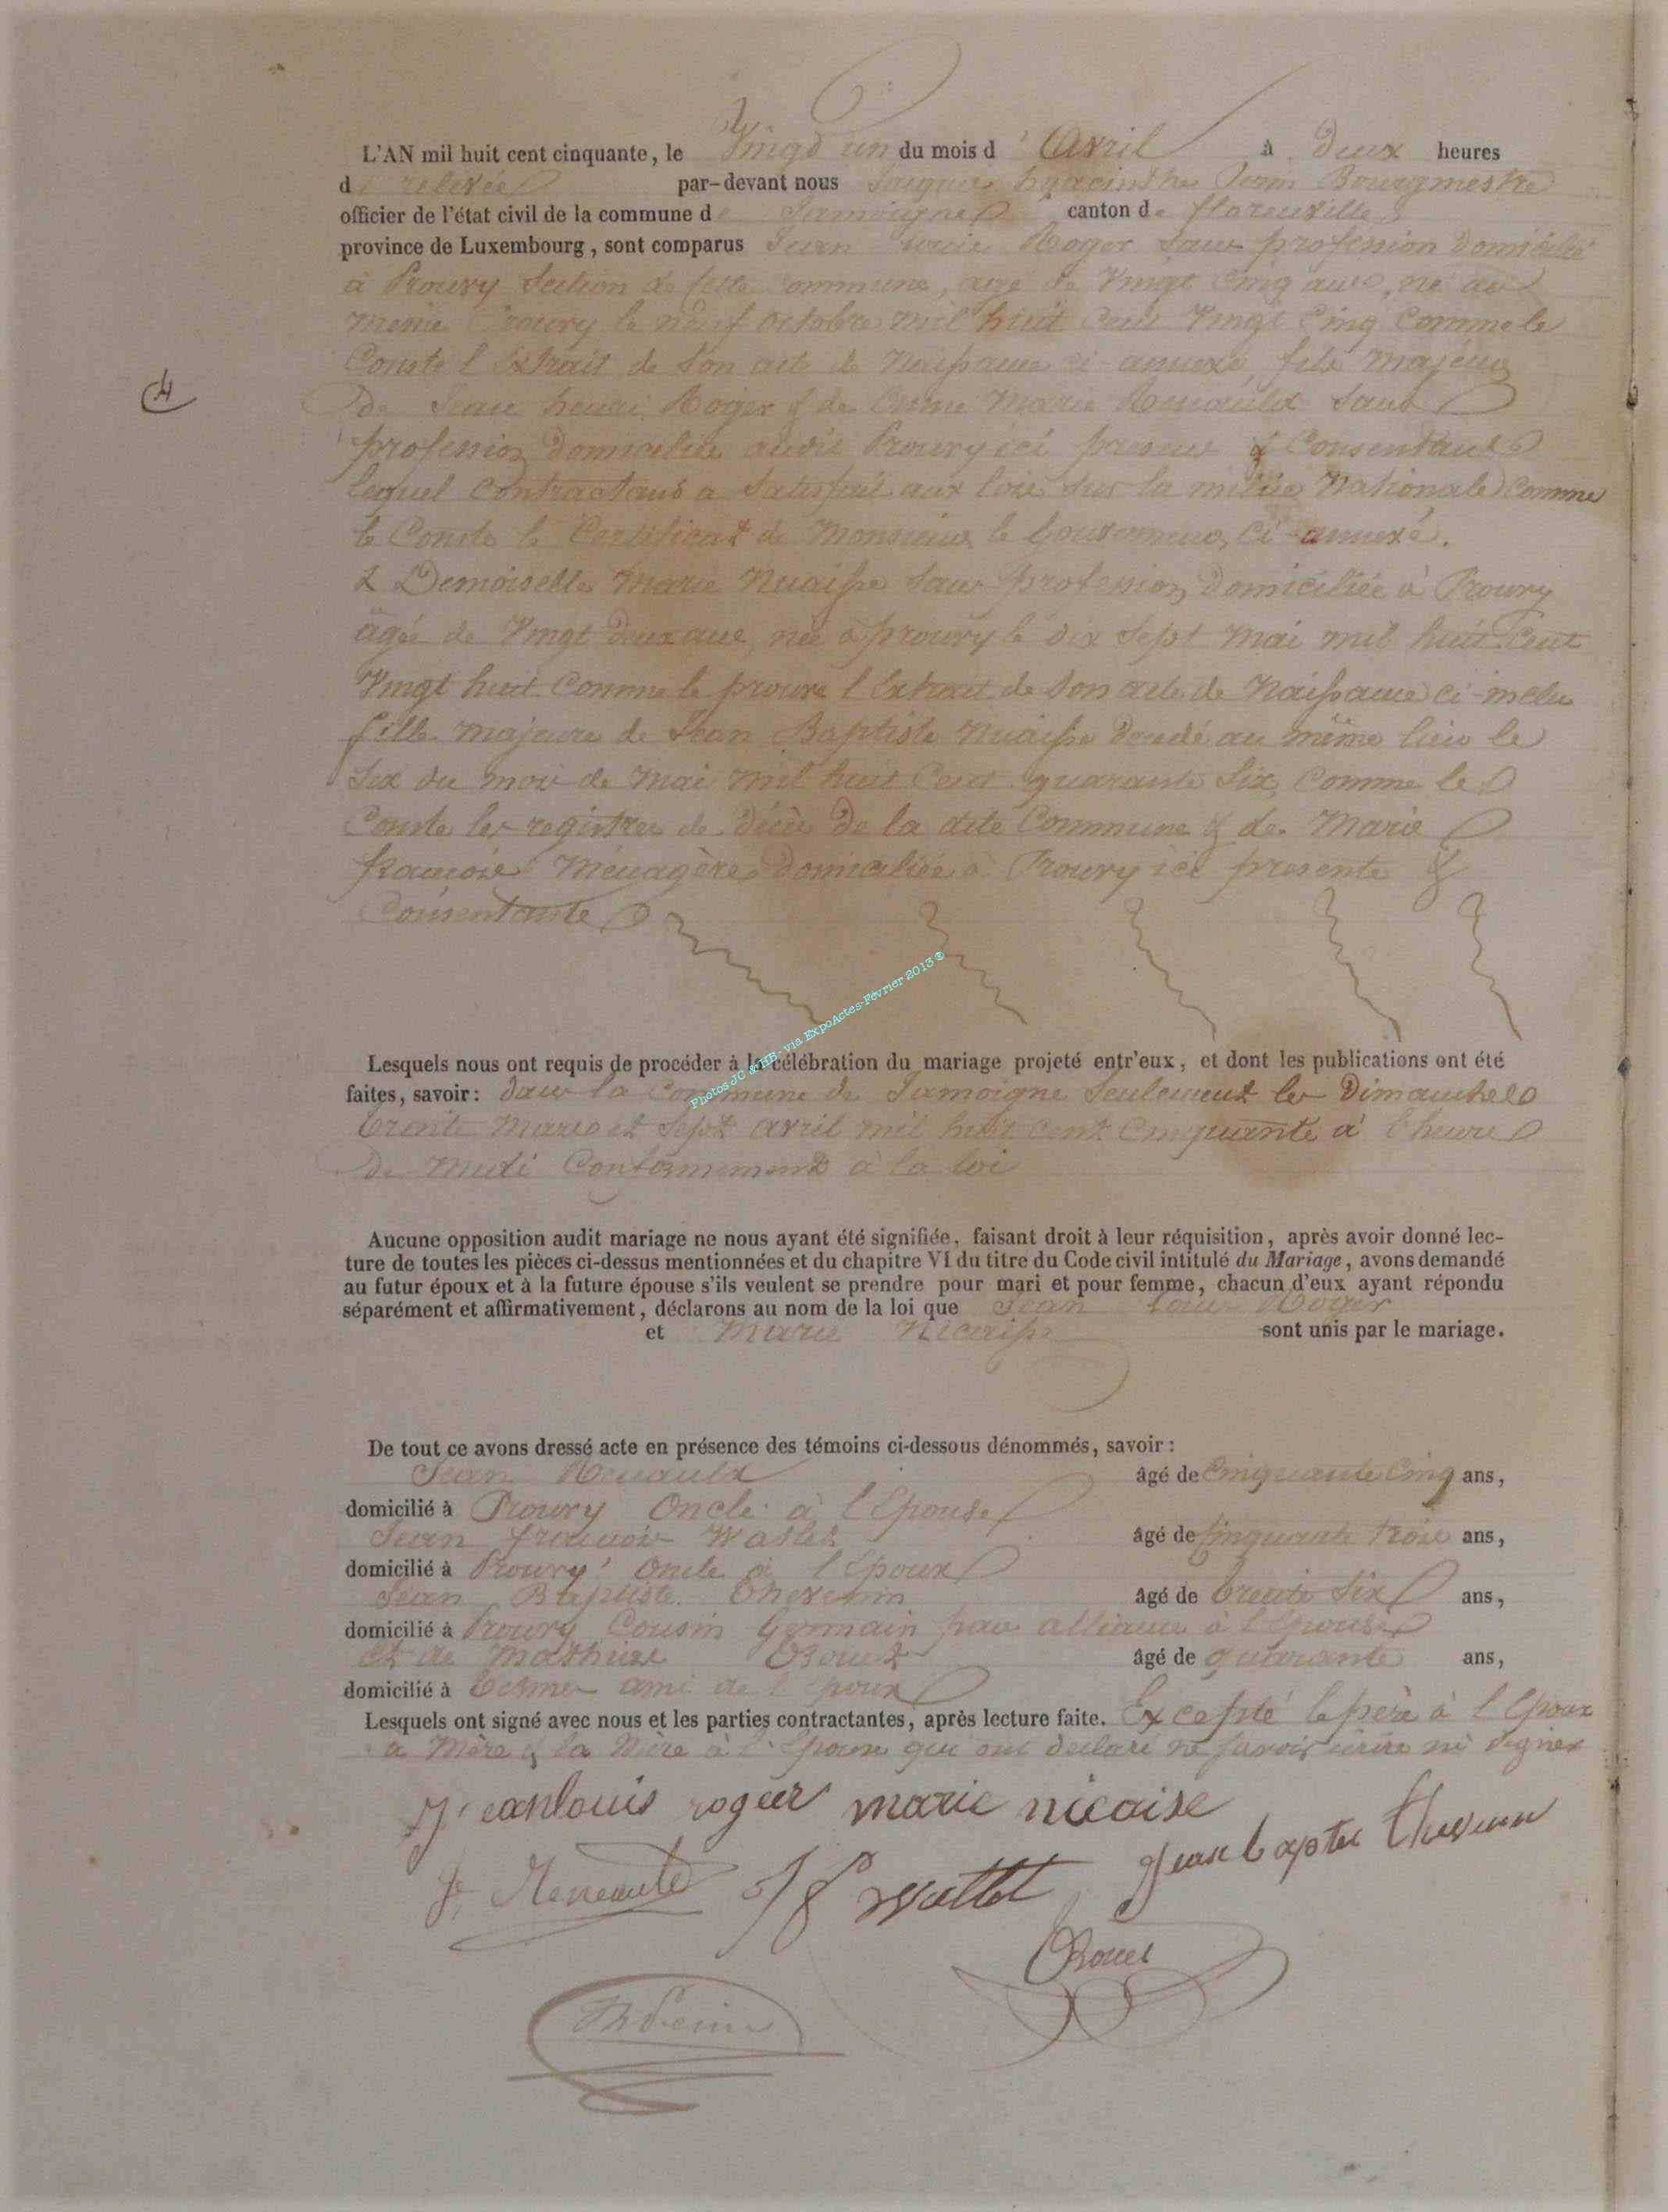 L'AN mil huit cent cinquante, le Vingt un du mois d'Avril à Deux heures
de relevée par-devant nous hyacinthe Bourgmestre
officier de l'état civil de la commune de Jamoigne canton de florenville
province de Luxembourg, sont comparus Jean Louis Roger sans profession Domicilié
à Prouvy Section de cette commune, agé de Vingt Cinq ans, né au
même Prouvy le neuf octobre mil huit Cent Vingt Cinq Comme le
Conste l'Extrait de Son acte de Naissance ci-annexé, fils Majeur
De Jean henri Roger & de Marie Renauld Sans
profession Domiciliés audit Prouvy ici present & Consentant
lequel Contractant a Satisfait aux loix Sur la milice Nationale Comme
le Conste le Certificat de Monsieur le Gouverneur, Ci-annexé.
& Demoiselle Marie Nicaisse Sans profession, Domiciliée à Prouvy
âgée de Vingt deux ans, née à prouvy le dix Sept mai mil huit Cent
Vingt huit Comme le prouve l'Extrait de Son acte de Naissance ci-inclu
fille majeure de Jean Baptiste Nicaisse Décedé au même lieu le
Six du mois de Mai mil huit Cent quarante Six, Comme le
Conste les registres de décès De la dite Commune & de Marie
Ménagère Domiciliée à Prouvy ici presente &
Consentante
Lesquels nous ont requis de procéder à la célébration du mariage projeté entr'eux, et dont les publications ont été
faites, savoir: dans la Commune de Jamoigne Seulement les Dimanches
trente Mars et Sept avril mil huit cent Cinquante à l'heure
De Midi Conformément à la loi
Aucune opposition audit mariage ne nous ayant été signifiée, faisant droit à leur réquisition, après avoir donné lec-
ture de toutes les pièces ci-dessus mentionnées et du chapitre VI du titre du Code civil intitulé du Mariage, avons demandé
au futur époux et à la future épouse s'ils veulent se prendre pour mari et pour femme, chacun d'eux ayant répondu
séparément et affirmativement, déclarons au nom de la loi que Jean Louis Roger
et Marie Nicaisse sont unis par le mariage.
De tout ce avons dressé acte en présence des témoins ci-dessous dénommés, savoir:
Jean Renauld âgé de Cinquante Cinq ans,
domicilié à Prouvy Oncle à l'Epouse
Jean françois Watlet âgé de Cinquante trois ans,
domicilié à Prouvy Oncle à l'Epoux
Jean Baptiste Thevenin âgé de trente Six ans,
domicilié à Prouvy Cousin Germain par alliance à l'Epouse
et de Mathieu âgé de quarante ans,
domicilié à Termes ami de l'Epoux
Lesquels ont signé avec nous et les parties contractantes, après lecture faite. Excepté le père à l'Epoux
la Mère & la Mère à l'Epouse qui ont déclaré ne savoir écrire ni Signer
Jeanlouis roger marie nicaise
J. Renauld J f Watlet Jean baptiste thevenin
4
Photos JC & HB- via ExpoActes-Février 2013 ®